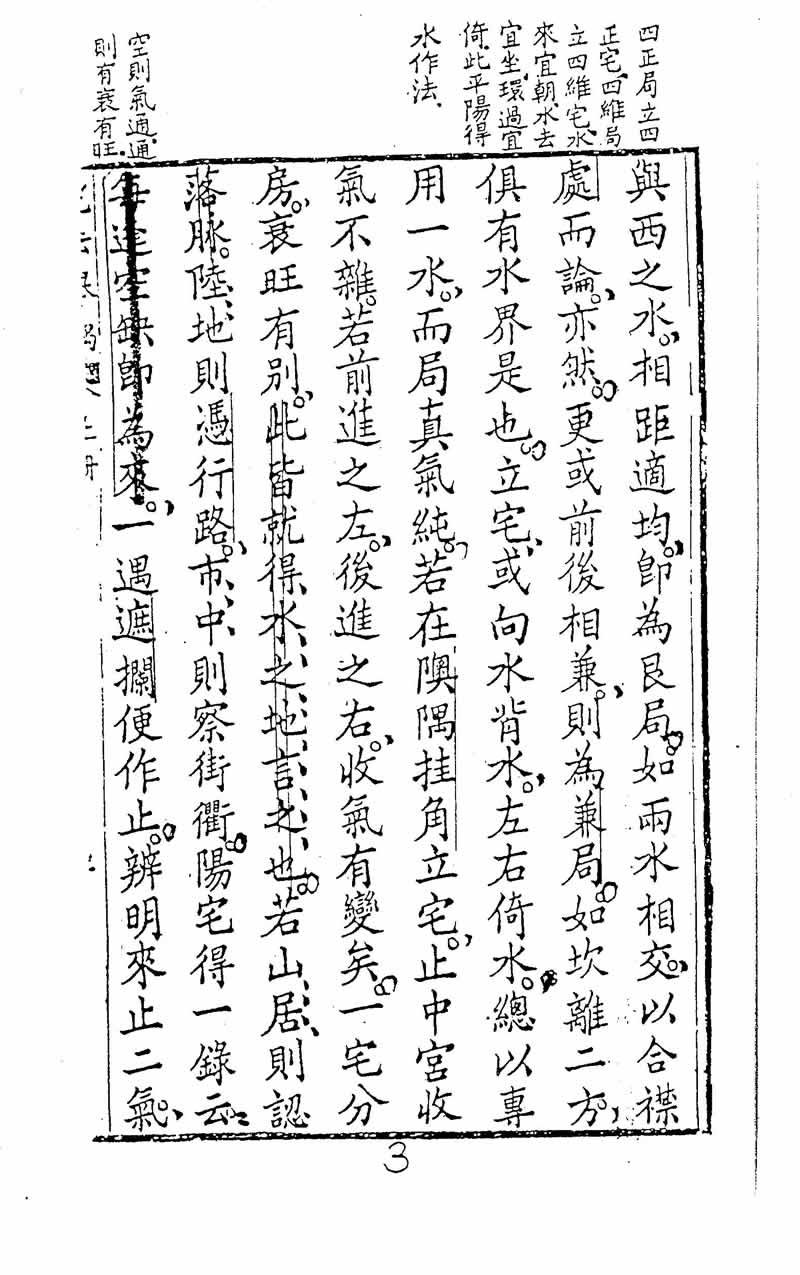 四正局立四
正宅四維局
立四維宅水
來宜朝水去
宜坐環過宜
倚此平陽得
水作法
空則氣通通
則有衰有旺
與西之水。相距適均。卽為艮局。如兩水相交。以合襟
處而論。亦然。更或前後相兼。則為兼局。如坎離二方。
俱有水界是也。立宅、或向水背水。左右倚水。總以專
用一水。而局真氣純。若在隩隅挂角立宅。止中宮收
氣不雜。若前進之左。後進之右。收氣有變矣。一宅分
房。衰旺有別。此皆就得水之地言之也。若山居、則認
落脉。陸地則憑行路。市中、則察街衢。陽宅得一錄云
每逢空缺卽為來。一遇遮攔便作止。辨明來止二氣。
3